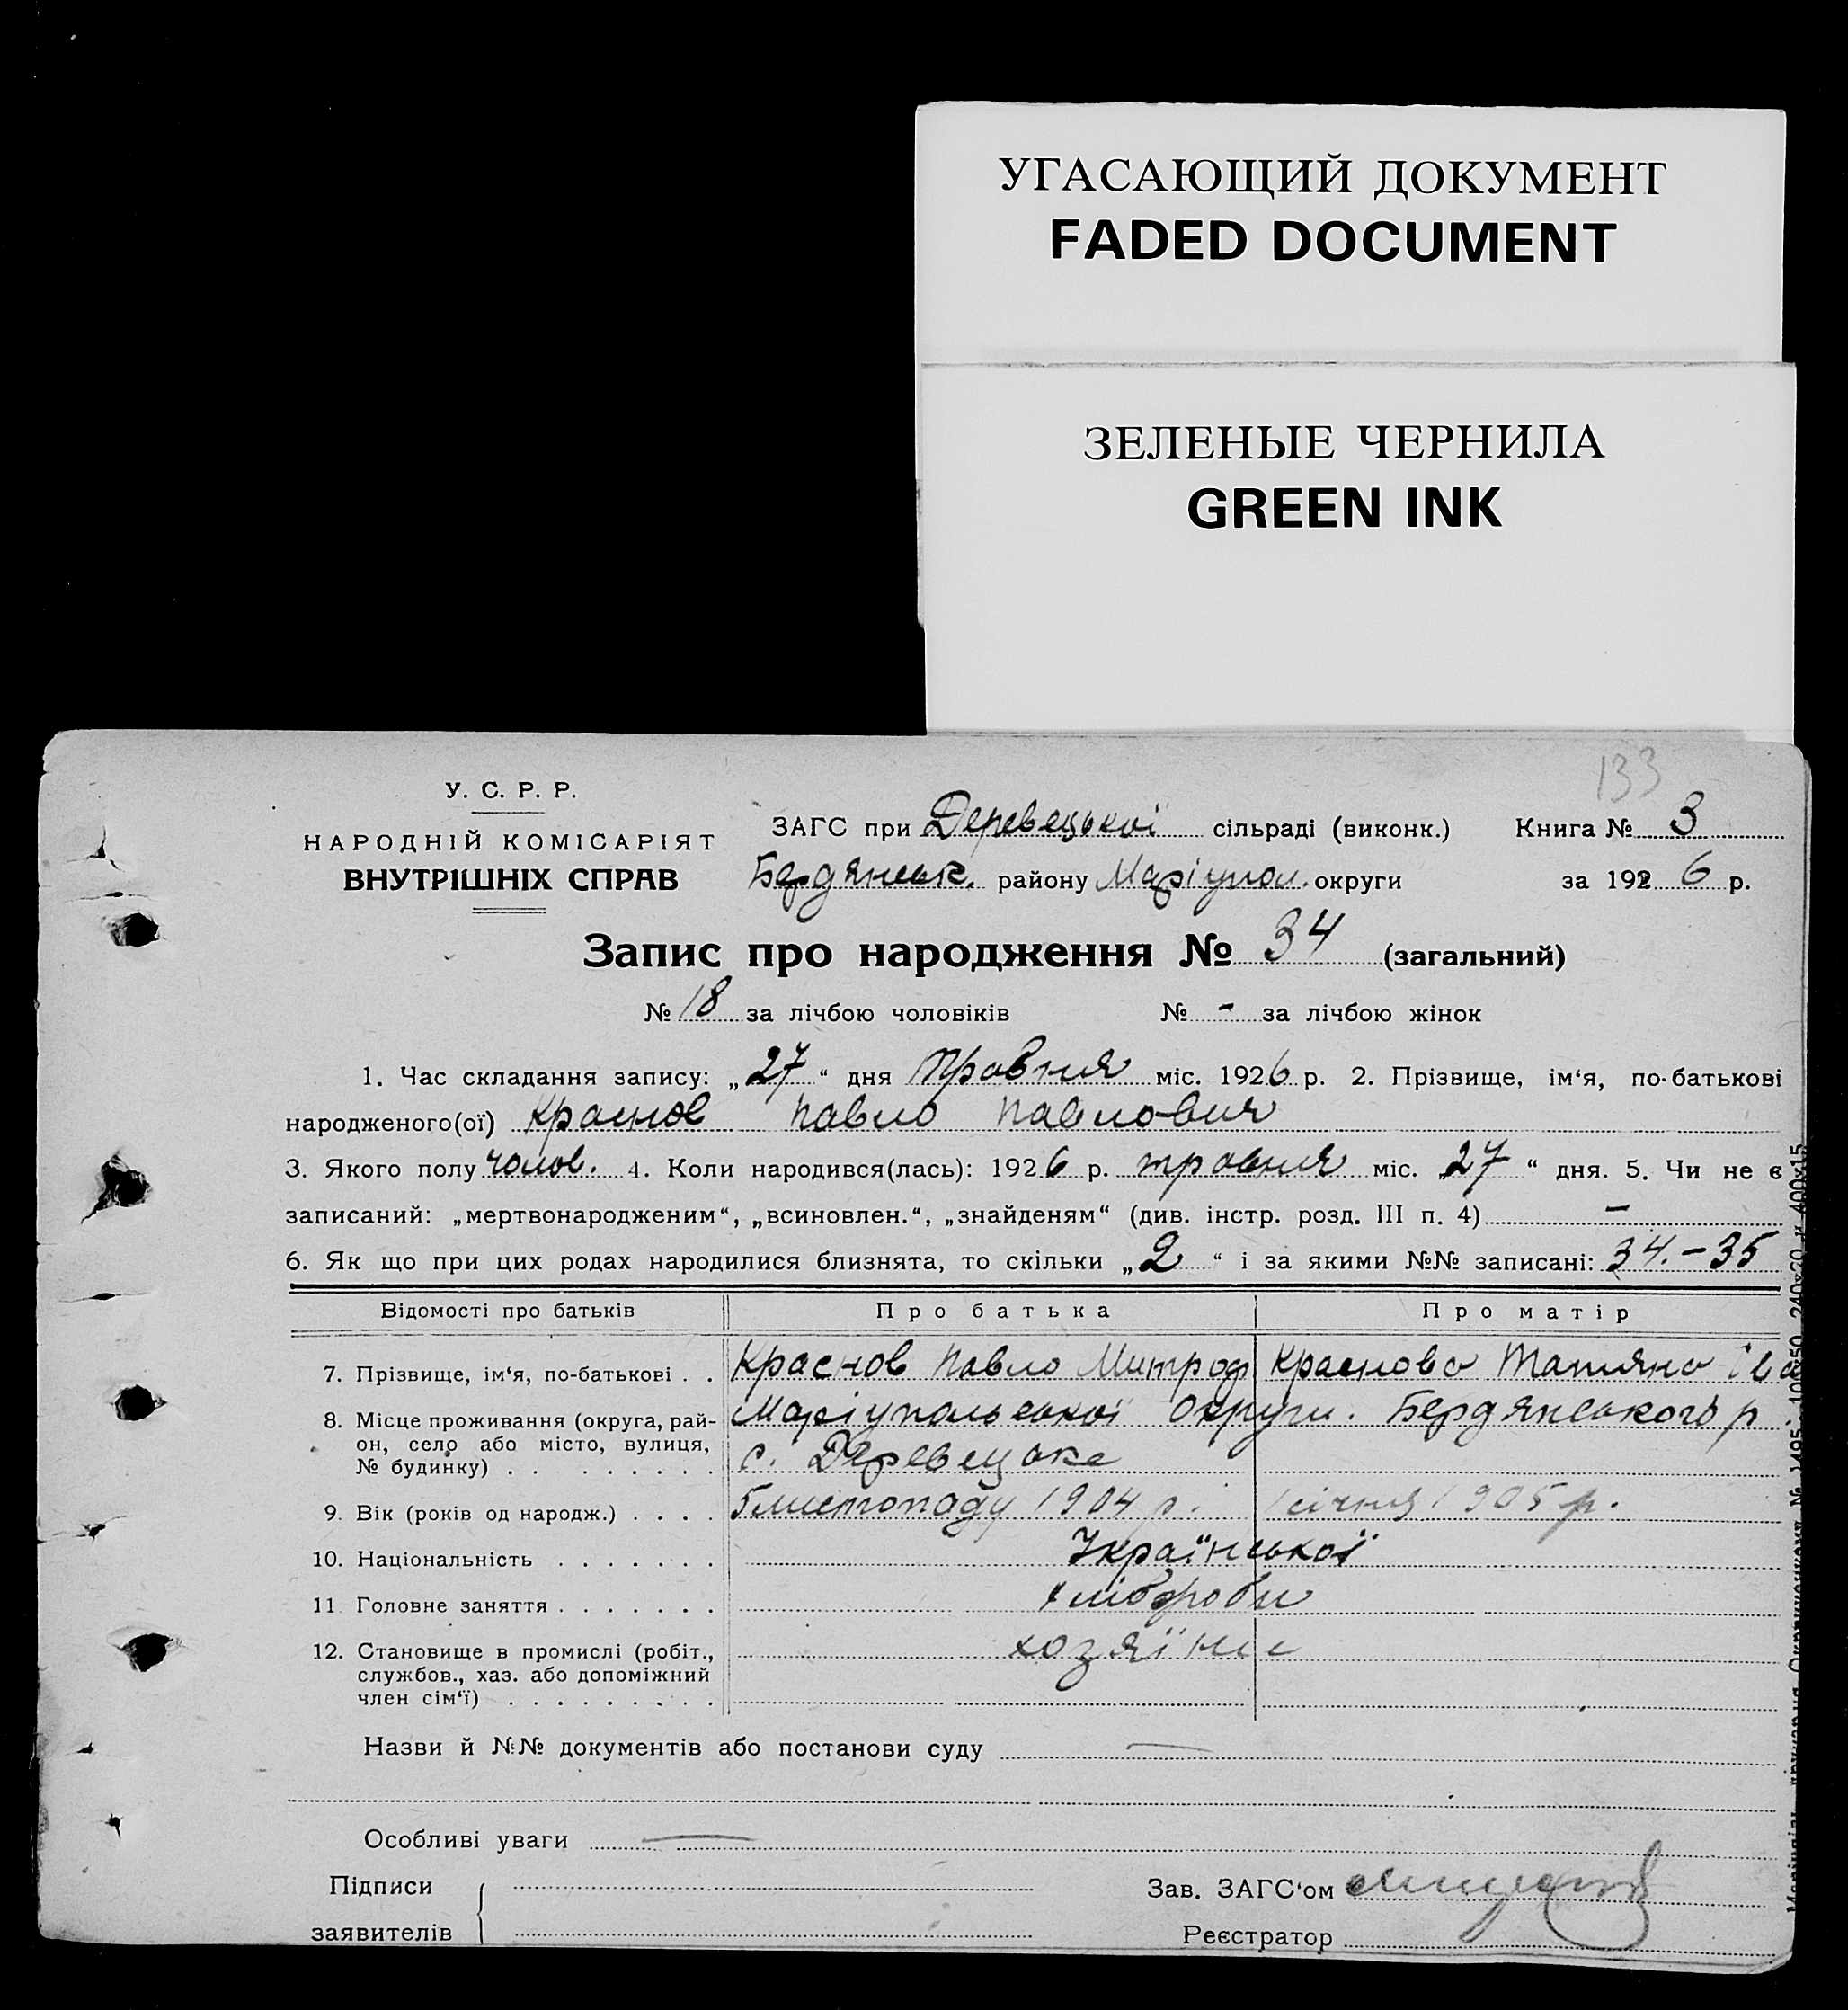 УГАСАЮЩИЙ ДОКУМЕНТ
FADED DOCUMENT
ЗЕЛЕНЫЕ ЧЕРНИЛА
GREEN INK
133
У. С. Р. Р.
НАРОДНІЙ КОМІСАРІЯТ
ВНУТРІШНІХ СПРАВ
ЗАГС при Деревецької сільраді (виконк.) Книга № 3
Бердянськ. району Маріупол. округи за 1926 р.
Запис про народження № 34 (загальний)
№ 18 за лічбою чоловіків № - за лічбою жінок
1. Час складання запису: „27“ дня травня міс. 1926 р. 2. Прізвище, ім'я, по-батькові
народженого(ої) Краснов Павло Павлович
3. Якого полу чолов. 4. Коли народився(лась): 1926 р. травня міс. „27“ дня. 5. Чи не є
записаний: „мертвонародженим“, „всиновлен.“, „знайденям“ (див. інстр. розд. III п. 4) -
6. Як що при цих родах народилися близнята, то скільки „2“ і за якими №№ записані: 34.-35
Відомості про батьків Про батька Про матір
7. Прізвище, ім'я, по-батькові . . Краснов Павло Митроф Краснова Татяна Іва
8. Місце проживання (округа, рай- Маріупольської Округи. Бердянського р
он, село або місто, вулиця, с. Деревецьке
№ будинку) . . . . . . . .
9. Вік (років од народж.) . . . . 5 листопаду 1904 р. 1 січня 1905 р.
10. Національність . . . . . . . Української
11. Головне заняття . . . . . . . хліброби
12. Становище в промислі (робіт., хозяїни
службов., хаз. або допоміжний
член сім'ї) . . . . . . . . .
Назви й №№ документів або постанови суду —
Особливі уваги —
Підписи
заявителів
Зав. ЗАГС'ом
Реєстратор